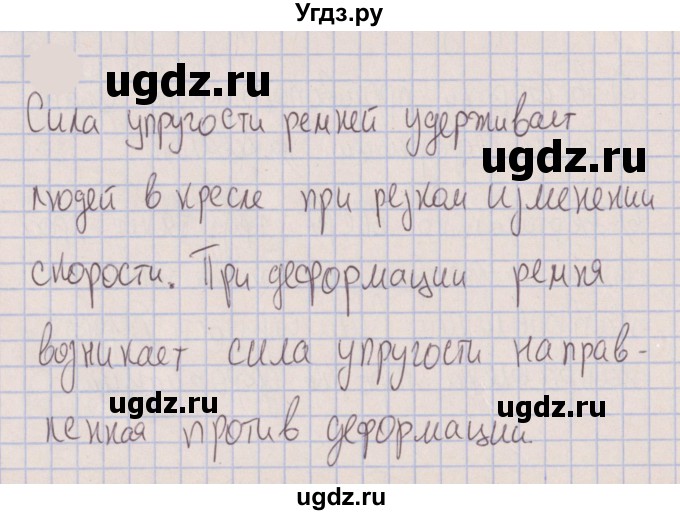 Угдз.ру
ugdz.ru
Сила упругости ремней удерживает
ugdz.ru
людей в кресле при резком изменении
скорости. При деформации ремня
возникает сила упругости направ-
ugdz.ru
ugdz.ru
ленная против деформации.
ugdz.ru